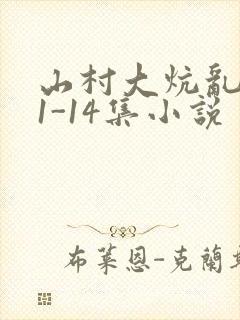 山村大炕亂
1-14集小説
布萊恩-克蘭